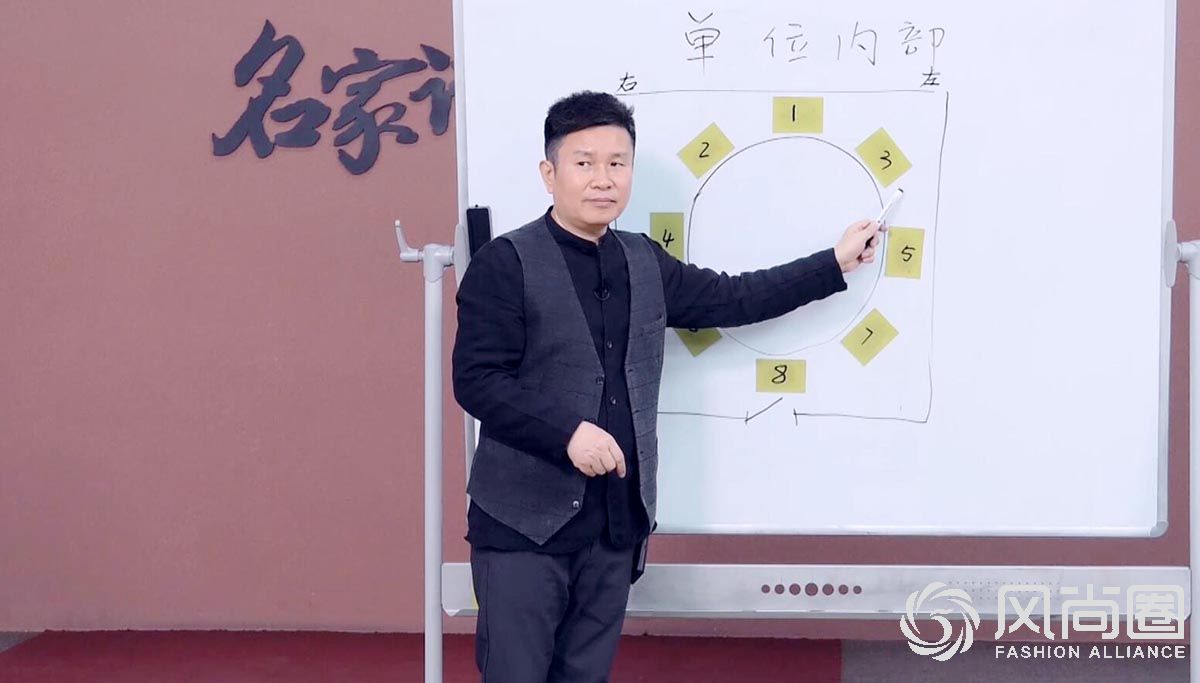 名家
单位内部
右 左
1
2 3
4 5
7
8
风尚圈
FASHION ALLIANCE